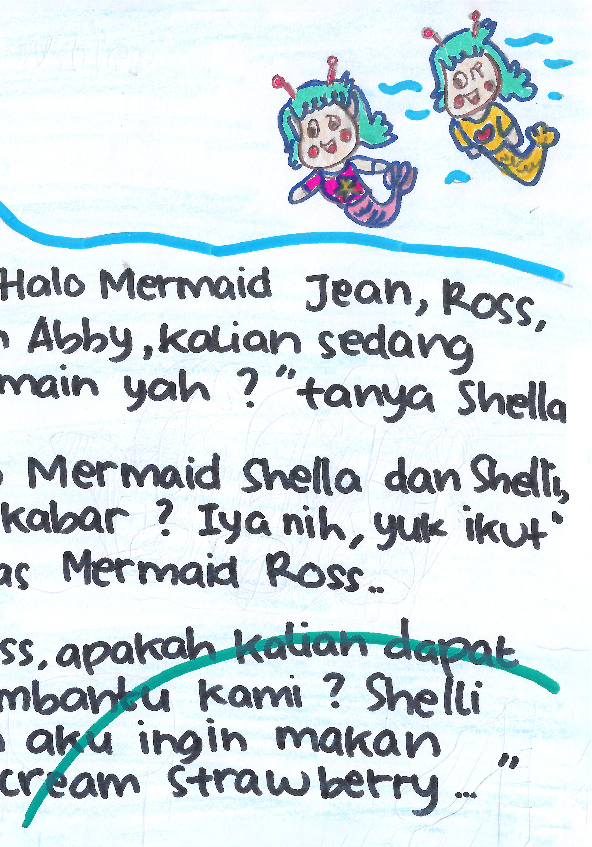 Halo Mermaid Jean, Ross,
Abby, kalian sedang
main yah ? "tanya Shella
Mermaid Shella dan Shelli,
kabar ? Iya nih, yuk ikut"
as Mermaid Ross..
ss, apakah kalian dapat
mbantu kami ? Shelli
aku ingin makan
cream strawberry... "